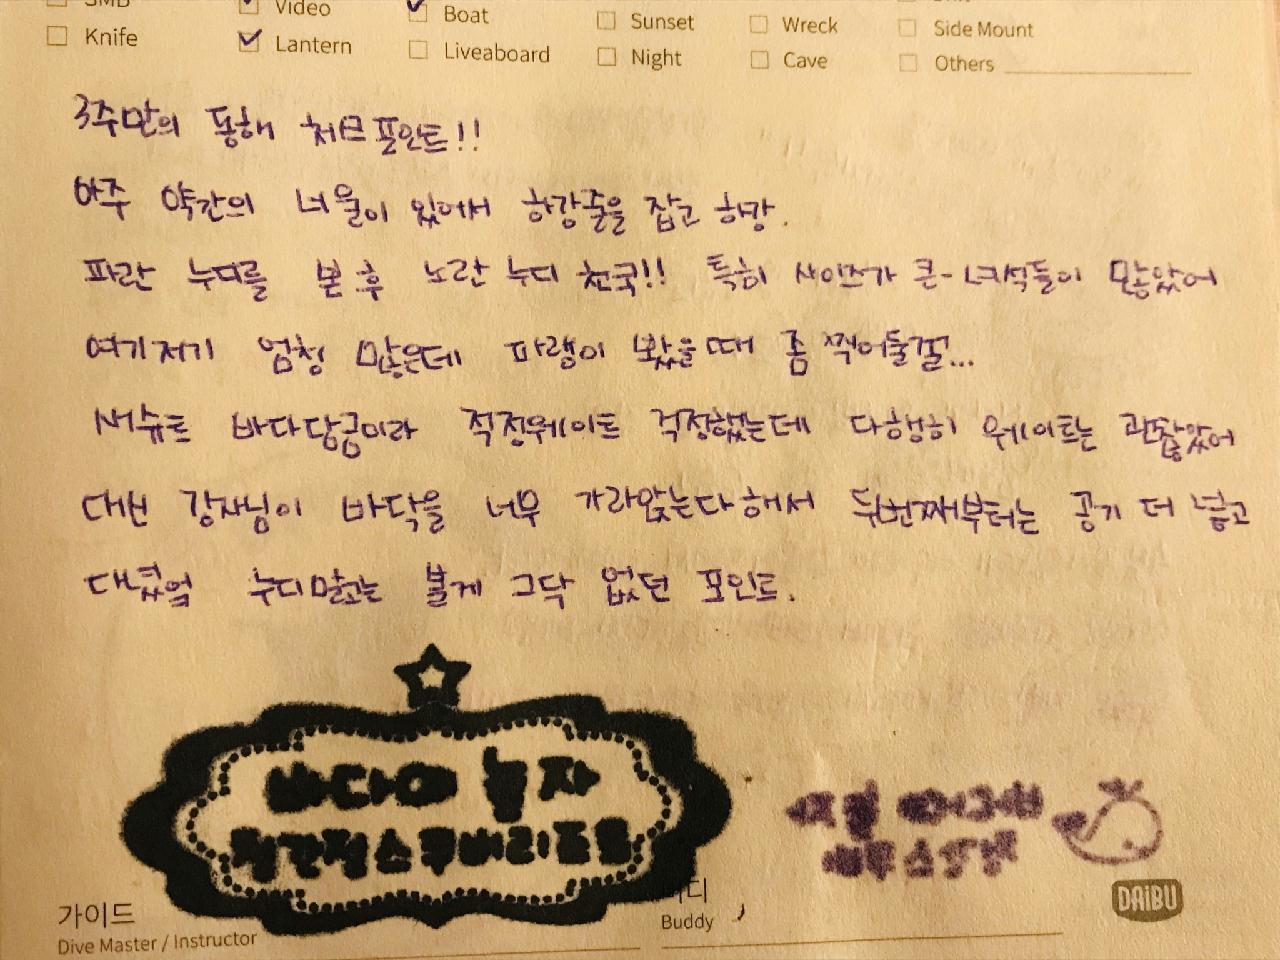 SMB Video Boat Sunset Wreck Side Mount
Knife Lantern Liveaboard Night Cave Others
3주만의 동해 체크 포인트!!
아주 약간의 너울이 있어서 하강줄을 잡고 하강.
파란 누디를 본 후 노란 누디 천국!! 특히 사이즈가 큰- 녀석들이 많았어
여기저기 엄청 많은데 파랭이 봤을때 좀 찍어둘걸...
새슈트 바다담금이라 적정웨이트 걱정했는데 다행히 웨이트는 괜찮았어
대신 강사님이 바닥을 너무 가라앉는다 해서 둬번째부터는 공기 더 넣고
누디말고는 볼게 그닥 없던 포인트.
바다야 놀자
스쿠버리조트
가이드
Dive Master / Instructor
버디
Buddy
DAIBU